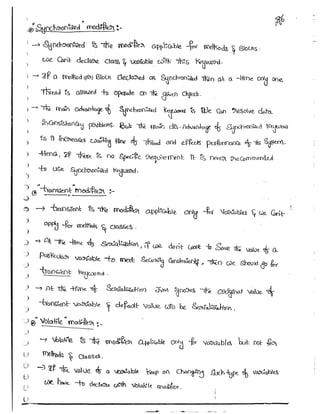 "Synchronized" modifier :-
→ Synchronized is the modifier applicable for methods & Blocks.
we can't declare class & variable with this Keyword.
→ If a method or Block declared as Synchronized then at a time only one
Thread is allowed to operate on the given object.
→ The main advantage of Synchronized keyword is we can resolve data
inconsistency problems. But the main dis-advantage of Synchronized keyword
is it increases waiting time of thread and effects performance of the System.
Hence, if there is no specific requirement it is never recommended
to use Synchronized keyword.
"transient" modifier :-
→ transient is the modifier applicable only for variables & we can't
apply for methods & classes.
→ At the time of Serialization, if we don't want to Save the value of a
particular variable to meet Security constraints, then we should go for
transient keyword.
→ At the time of Serialization Jvm ignores the original value of
transient variable & default value will be Serialized.
"Volatile" modifier :-
→ Volatile is the modifier applicable only for variables but not for
methods & classes.
→ If the value of a variable keep on changing such type of variables
we have to declare with volatile modifier.